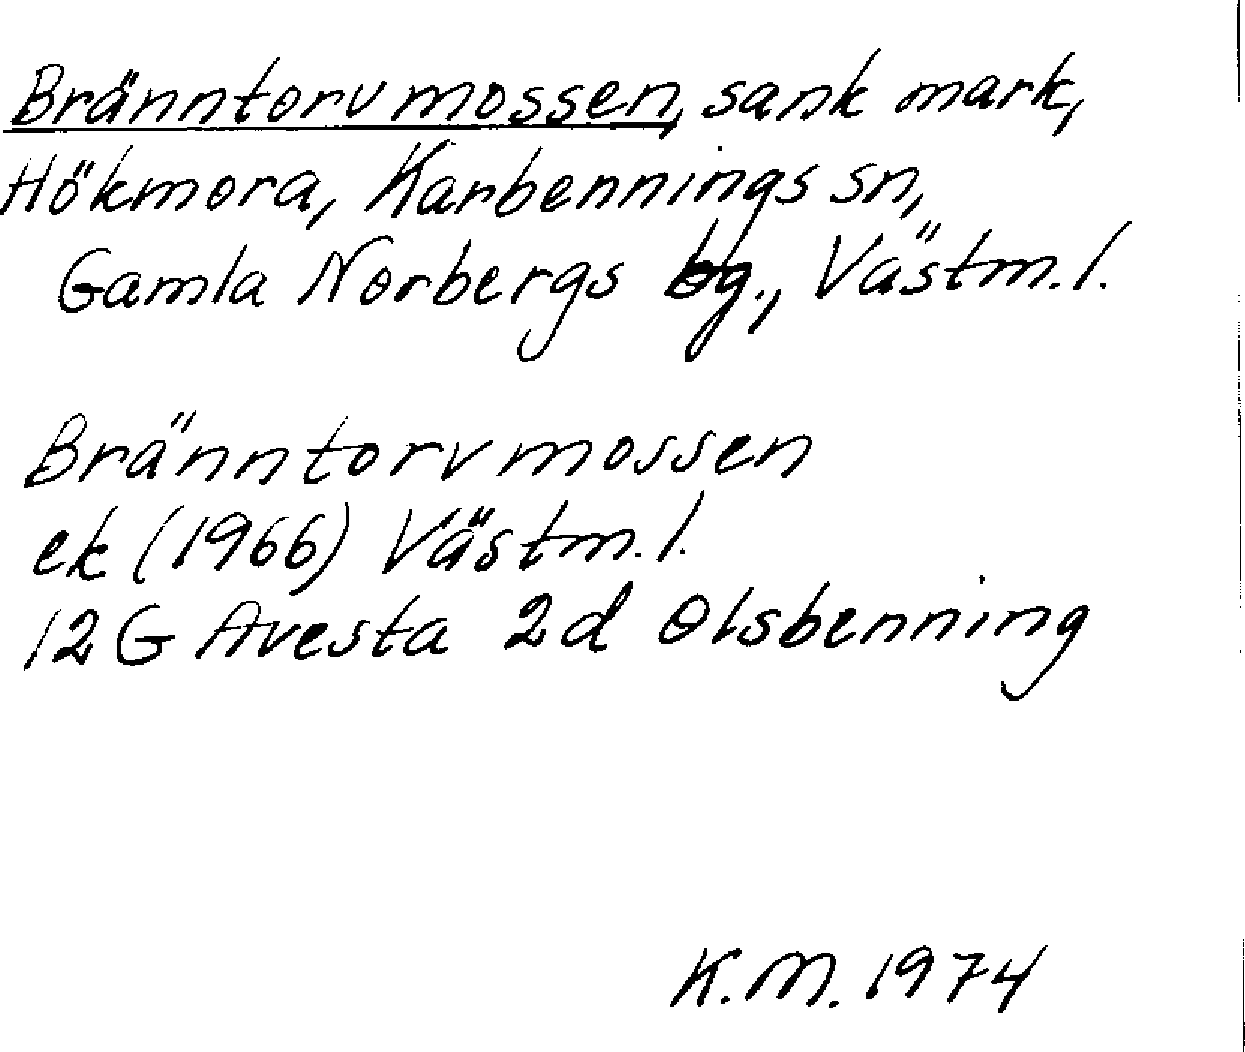 Bränntorvmossen, sank mark,
Hökmora, Karbennings sn,
Gamla Norbergs bg., Västm.l.
Bränntorvmossen
ek (1966) Västm.l.
12G Avesta 2d Olsbenning
K.M. 1974